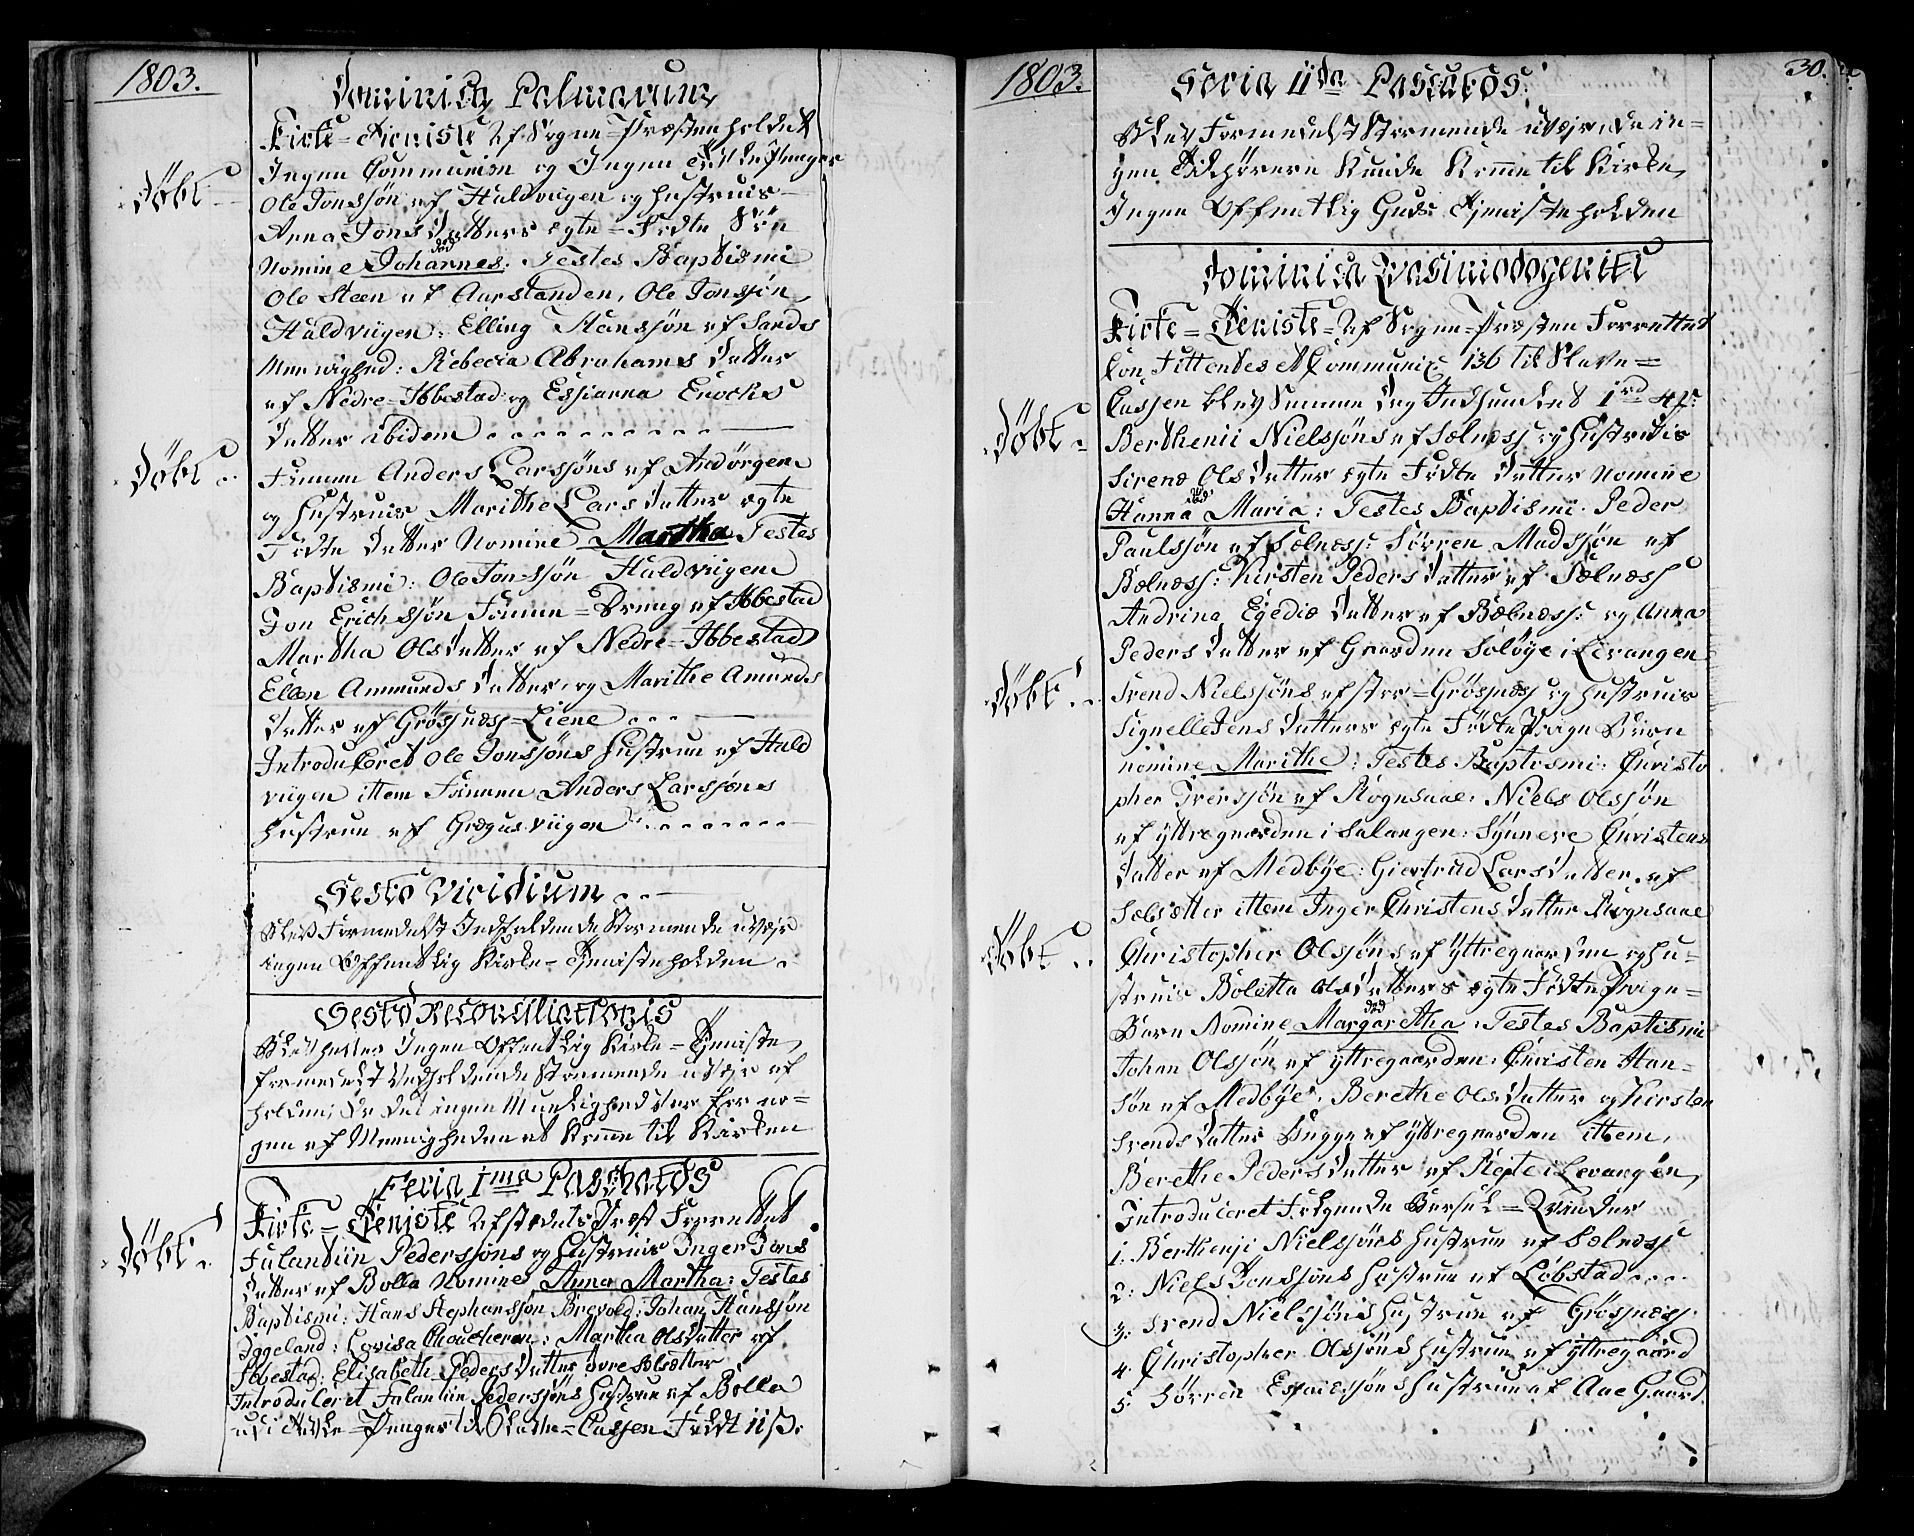 1803.
Dominica Palmarum
Kirke-Tieniste Af Sogne-Præsten holdet
Ingen Communion og Ingen Penger
Døbt
Ole Jonssøn af Haldviigen og Hustrues
Anna Jons Datters ægte-Fødte Søn
død
Nomine Johannes: Testes Baptismi
Ole Steen af Aarstanden, Ole Jonssøn
Haldviigen: Elling Hanssøn af Sands
Mennighed: Rebecca Abrahams Datter
af Nedre-Ibbestad og Essianna Enochs
Datter ibidem
Døbt
Finnen Anders Larssøns af Andørgen
og Hustrues Marithe Lars Datter ægte
Fødte Datter Nomine Martha Testes
Baptismi: Ole Jonssøn Haldviigen
Jon Erichssøn Finne-Dreng af Ibbestad
Martha Ols Datter af Nedre-Ibbestad
Ellen Ammunds Datter, og Marithe Amunds
Datter af Grøssnæss-Liene
Introduceret Ole Jonssøns Hustrue af Hald
viigen ittem Finnen Anders Larssøns
Hustrue af Grægusviigen
Festo Viridium
Blev Formedelst Indfaldende Stormende uveir
ingen Offentlig Kirke-Tieniste holden
Festo Reconciliationis
Blev heller Ingen Offentlig Kirke-Tieniste
formedelst Vedholdende Stormende uveir af
holden, da det ingen Muelighed var for no-
gen af Menigheden at komme til Kirken
Feria 1ma Paschatos
Kirke-Tieniste Af stedets Præst Forrettet
Døbt
Falentiin Pederssøns og Hustrues Inger Jons
Datter af Bolla Nomine Anna Martha: Testes
Baptismi: Hans Stephanssøn Brevold: Johan Hanssøn
Dyggeland: Lovisa: Martha Ols Datter af
Ibbestad: Elisabeth Peders Datter
Introduceret Falentin Pederssøns Hustrue af Bolla
udi Tavle-Penger til Slave-Cassen Faldt 11 s.
1803.
30.
Feria IIda Pascatos
Blev Formedelst Stormende uveir, da in-
gen Tilhørere Kunde Komme til Kirke,
Ingen Offentlig Guds Tjeniste holden
Dominica Qvasimodogeniti
Kirke-Tieniste-Af Sogne-Præsten Forrettet
Confittentes et Communic: 136 til Slave-
Cassen blev Samme Dag Indsamlet 1rd 4 s.
Døbt
Berthenii Nielssøns af Sælness og Hustrues
Sirenæ Ols Datter ægte Fødte Datter Nomine
død
Hanna Maria: Testes Baptismi: Peder
Paulssøn af Sælness: Sørren Madssøn af
Bælness: Kirsten Peders Datter af Sælness
Andrina Egediæ Datter af Bælness: og Anna
Peders Datter af Gaarden Soløye i Levangen
Døbt
Svend Nielssøns af stor-Grøssnæss og Hustrues
Signelle Jens Datters ægte Fødte Pige Barn
Nomine Marithe: Testes Baptismi: Christo
pher Iverssøn af Røgnsaae: Niels Olssøn
af Yttregaarden i Salangen: Synnere Christens
Datter af Medbye: Giertrud Lars Datter af
Sælsætter ittem Inger Christens Datter Røgnsaae
Døbt
Christopher Olssøns af Yttregaarden og hu-
strues Boletta Ols Datters ægte Fødte Pige-
død
Barn Nomine Margaretha: Testes Baptismi
Johan Olssøn af Yttregaarden: Christen Han-
søn af Medbye: Berethe Ols Datter og Kirsten
Svends Datter Begge af Yttregaarden ittem
Berethe Peders Datter af Røte i Levangen
Introduceret Følgende Barsel-Qvinder
1. Berthenii Nielssøns Hustrue af Sælness
2: Niels Jonssøns Hustrue af Løbstad
3: Svend Nielssøns Hustrue af Grøssnæss
4. Christopher Olssøns Hustrue af Yttregaard
5. Sørren Espenssøns Hustrue af Aae Gaard